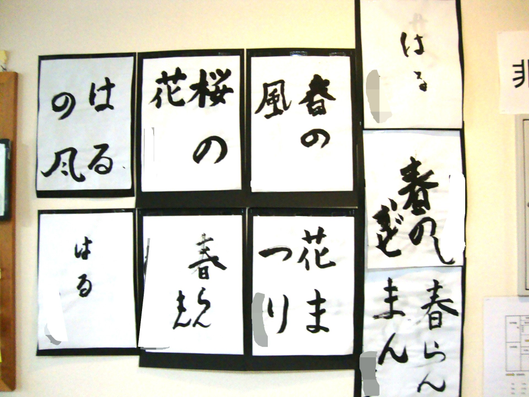 非
はる
春の
春らん
まん
春の
風
桜の
花
はる
の风
花ま
つり
春らん
まん
はる